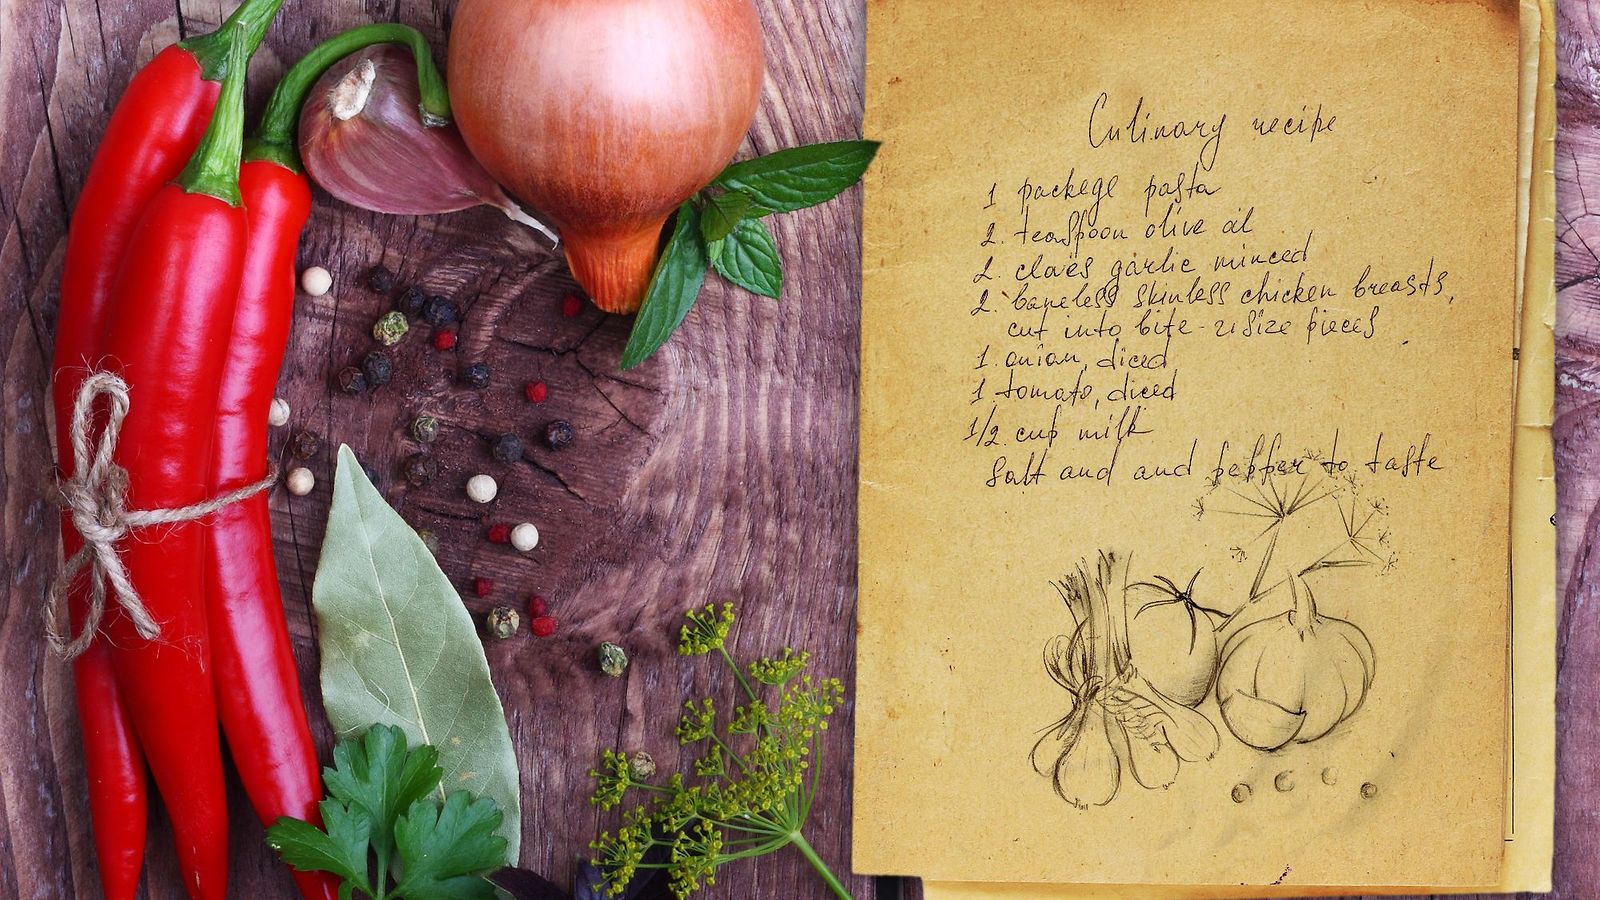 Culinary recipe
1 packege pasta
2. teaspoon olive oil
2. cloves garlic minced
2. boneless skinless chicken breasts,
cut into bite-size pieces
1. onion, diced
1 tomato, diced
1/2. cup milk
Salt and and pepper to taste